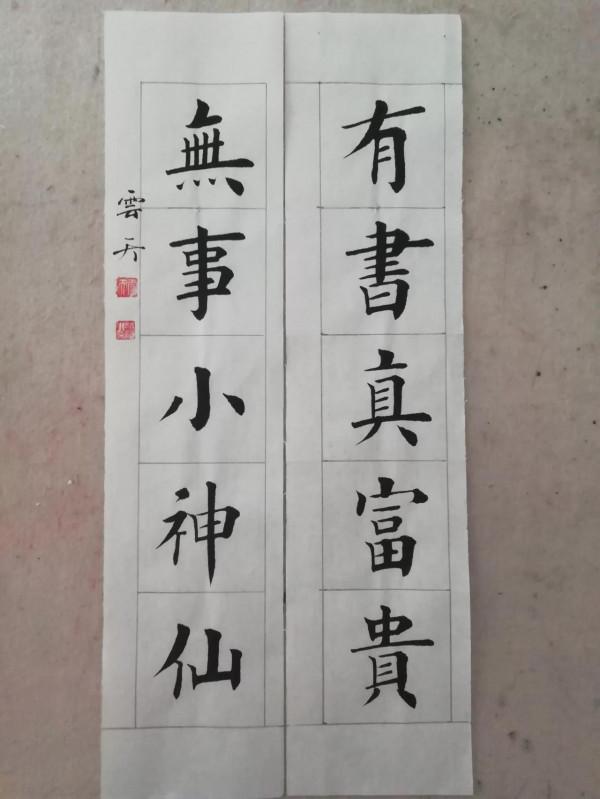 有書真富貴
無事小神仙
雲天